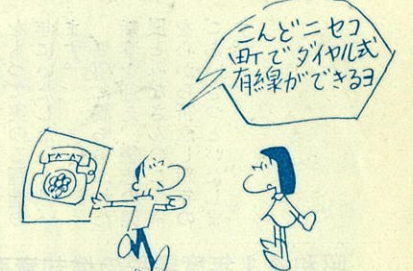 こんどニセコ
町でダイヤル式
有線ができるヨ